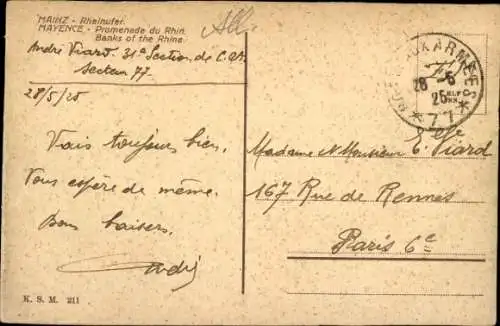 MAINZ - Rheinufer.
MAYENCE - Promenade du Rhin.
Banks of the Rhine.
All.
André Viard 31e Section de C.O.A.
Secteur 77
28/5/25
Vais toujours bien.
Vous espère de même.
Bons baisers.
André
K. S. M. 211
28 - 5
25
* 77 *
F.M.
Madame & Monsieur E. Viard
167 Rue de Rennes
Paris 6e